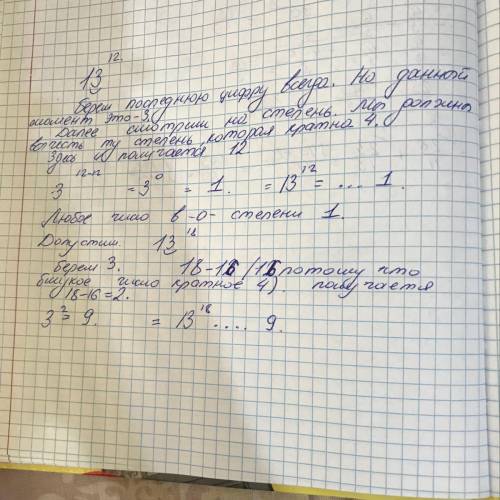 12.
13
берем последнюю цифру всегда. На данный
момент это -3.
Далее смотрим на степень. Мы должны
вычесть ту степень, которая кратна 4.
Здесь и получается 12
3^12-12 = 3^0 = 1. = 13^12 = ... 1.
Любое число в -0- степени 1.
Допустим 13^18
берем 3. 18-16 /16 потому что
близкое число кратное 4). получается
18-16=2.
3^2 = 9. = 13^18 .... 9.